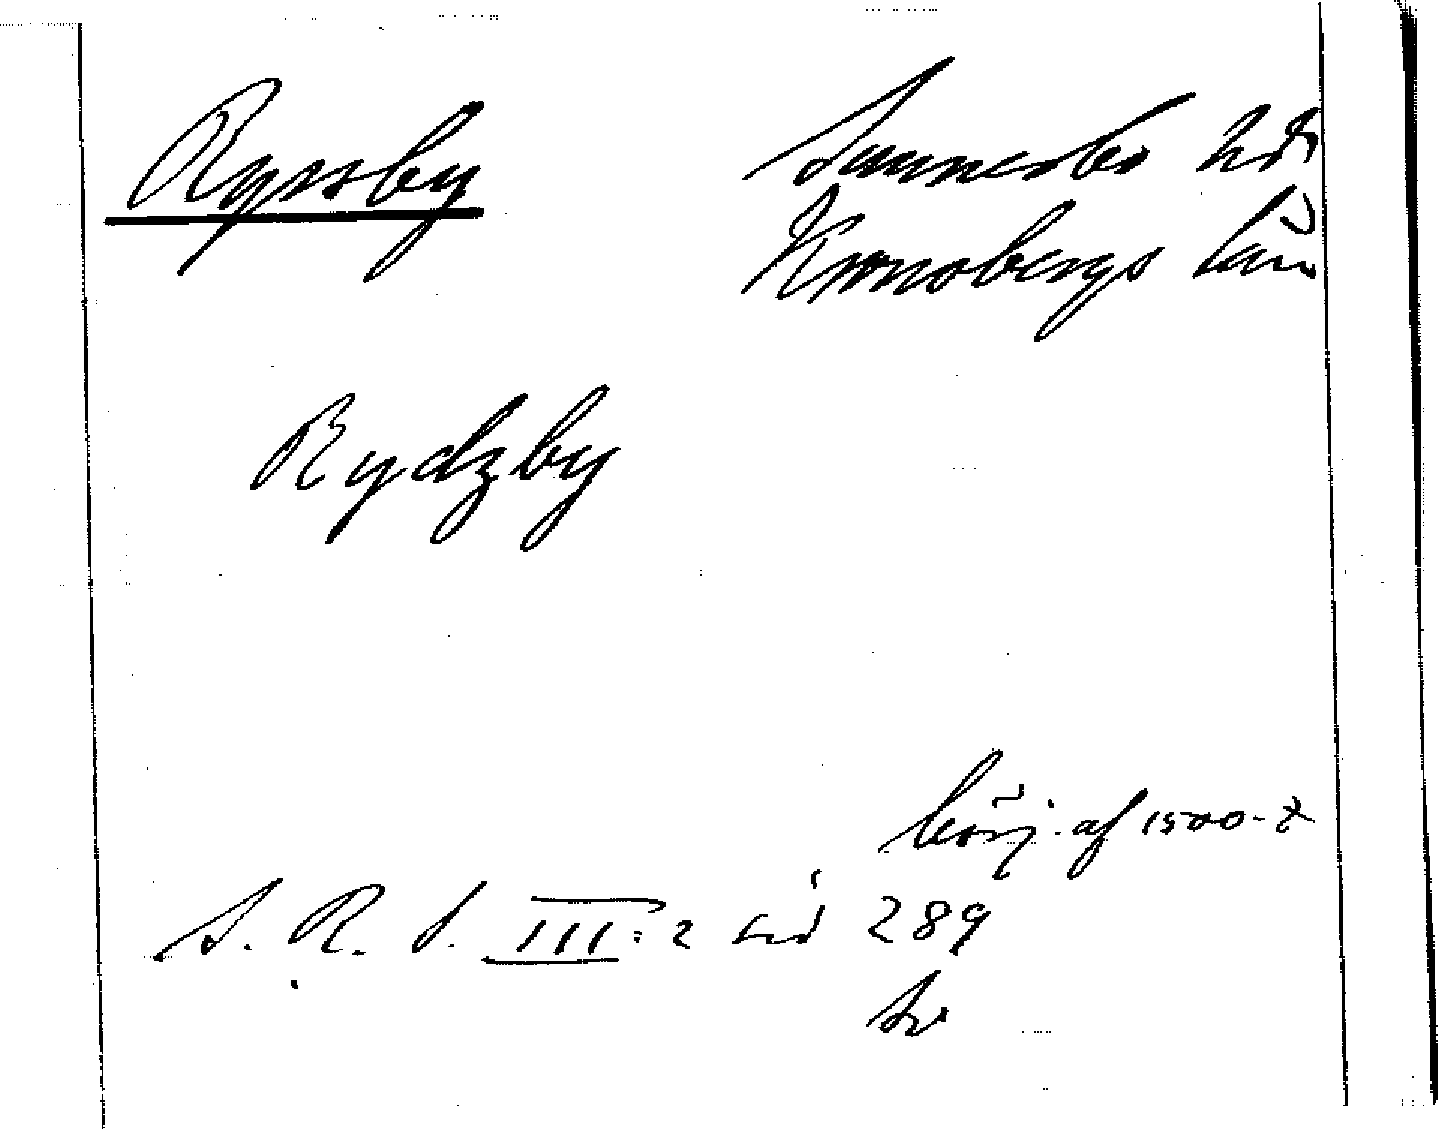 Ryssby Sunnerbo hd
Kronobergs län
Rydzby
börj. af 1500-t
S. R. S. III:2 sid 289
Sv